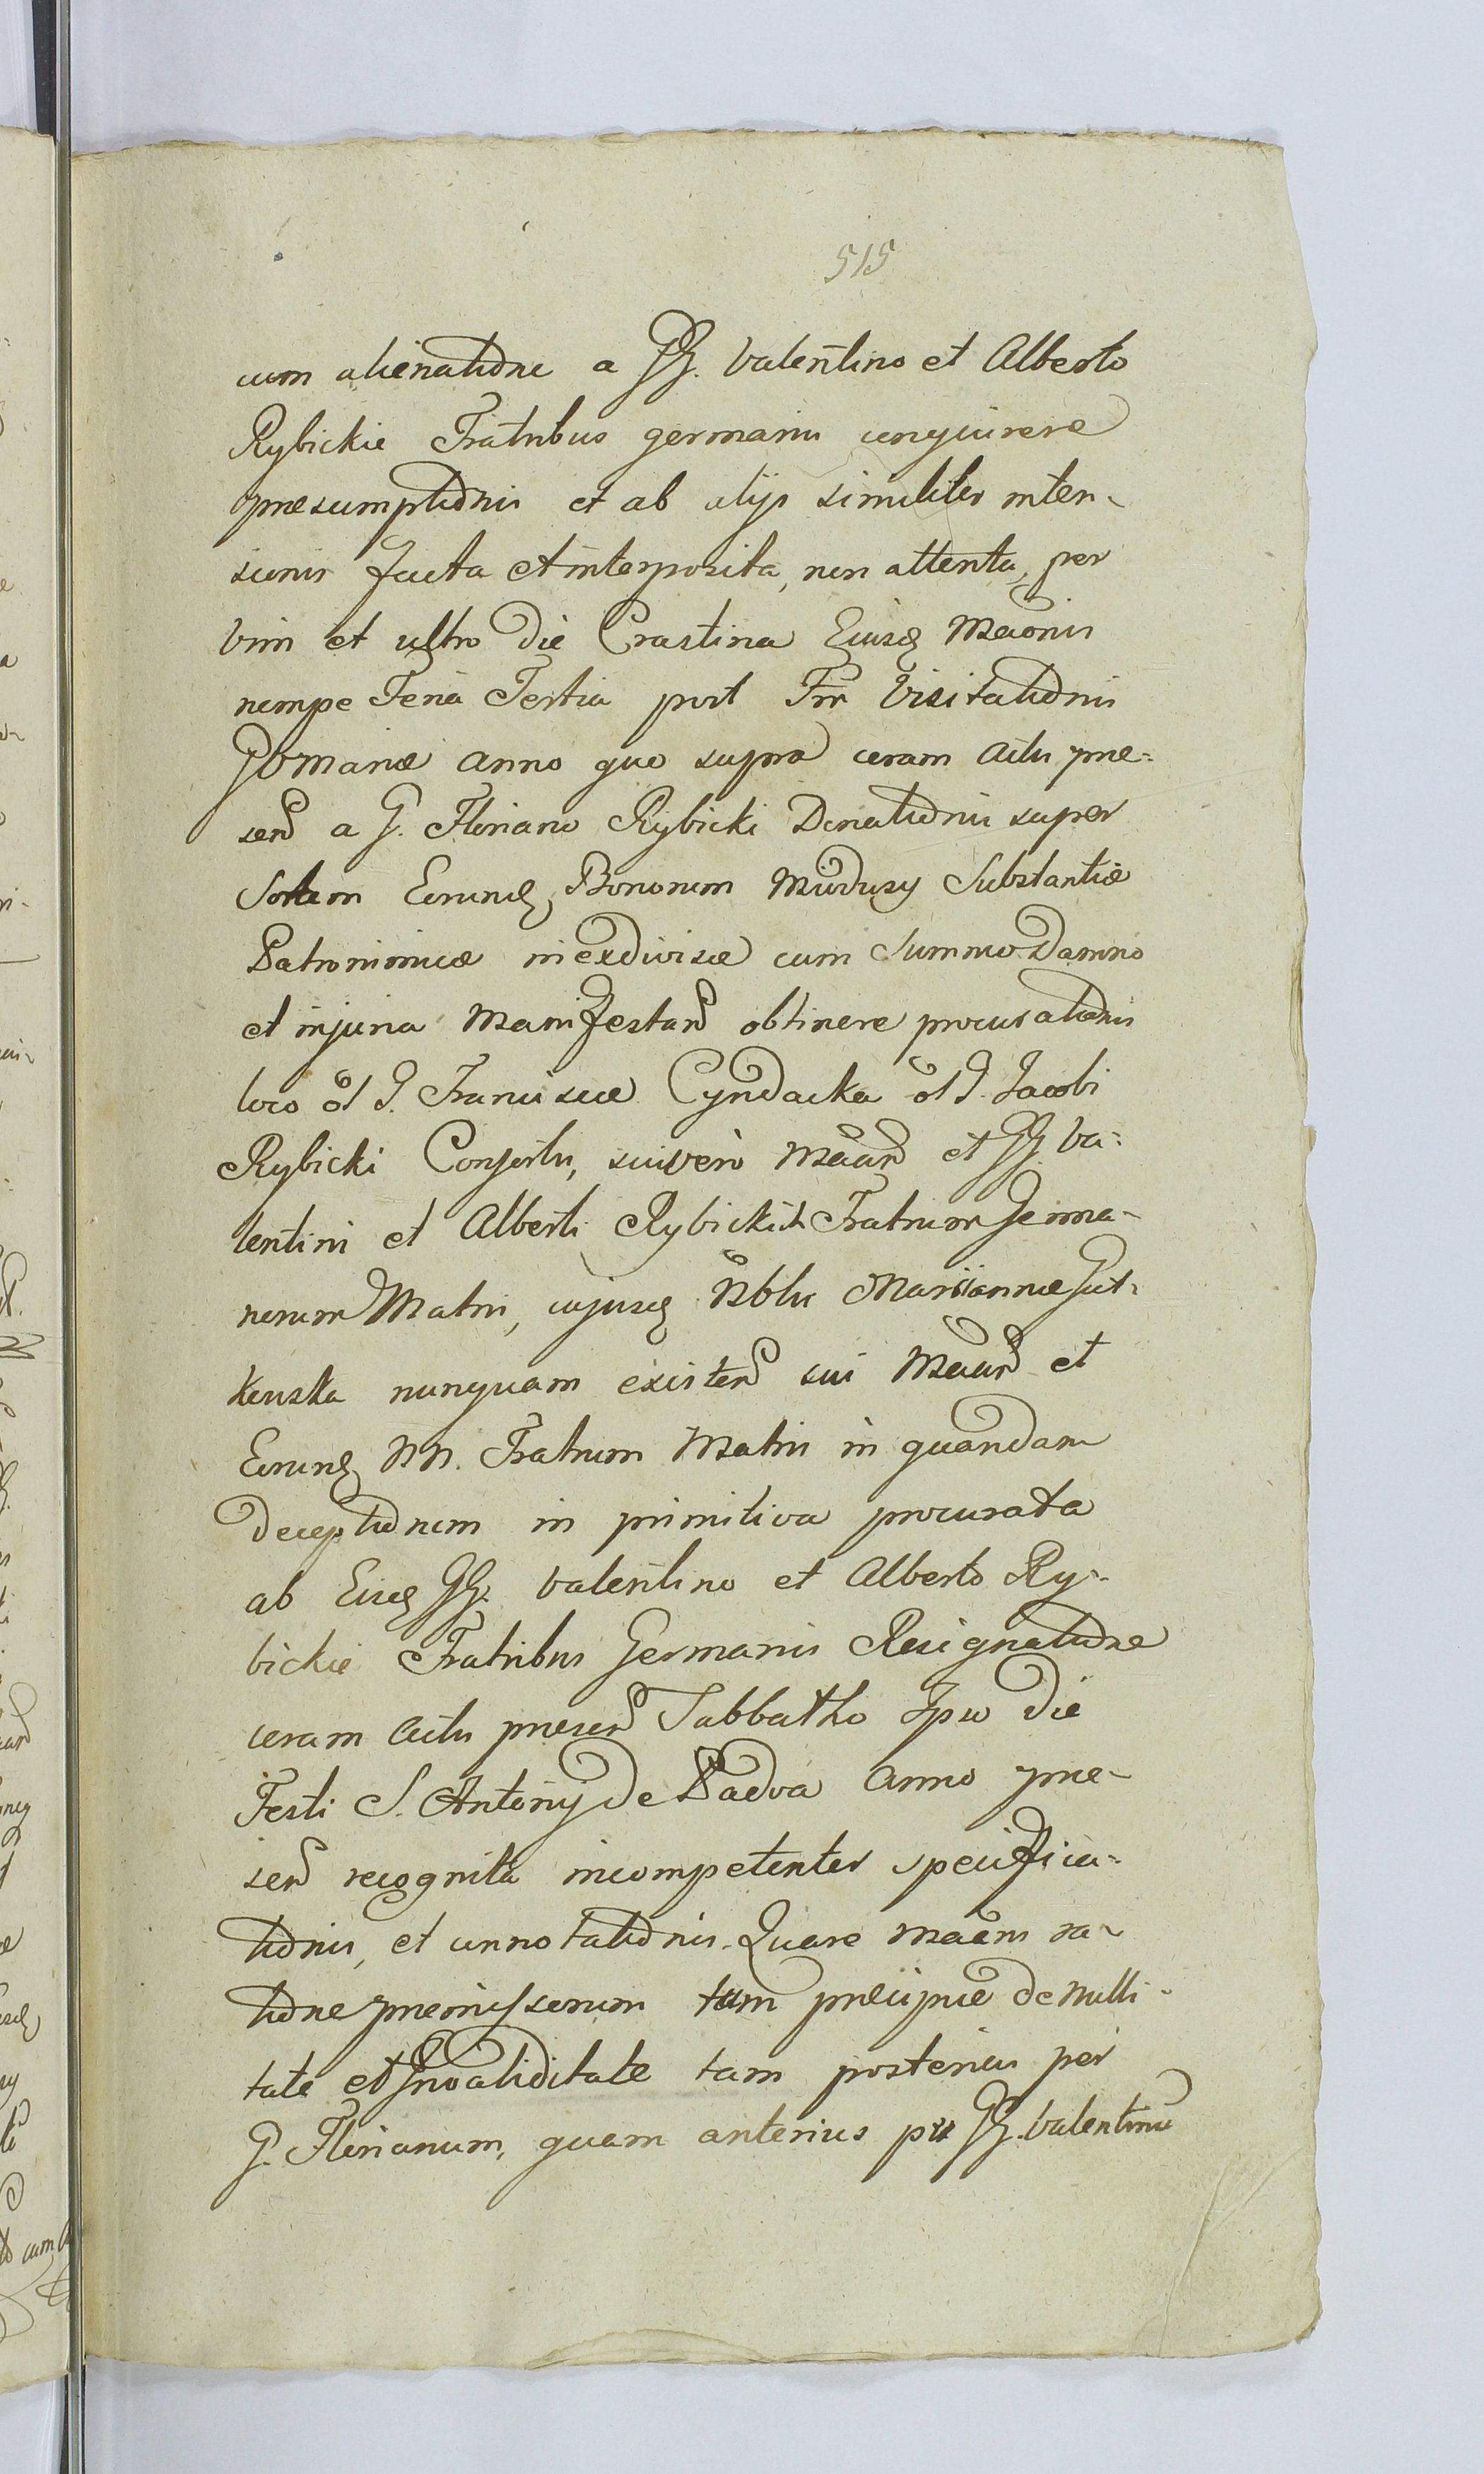 515
cum alienatione a GG. Valentino et Alberto
Rybickie Fratribus germanis conquirere
præsumptionis et ab alijs similiter inten-
sionis facta et interposita, non attenta, per
Vim et ultro die Crastina Ejusdq Maonis
nempe Feria Tertia post Fm Visitationis
Gomanæ anno quo supra coram Actis præ-
send a G. Floriano Rybicki Donationis super
Sortem Eorundq Bonorum Miedusy Substantiæ
Patronimicæ inexdivisæ cum Summo Damno
et injuria Manifestand obtinere procurationis
loco ol G. Franciscæ Cyndacka ol G. Jacobi
Rybicki Consortis, sui vero Maand et GG. Va-
lentini et Alberti Rybickich Fratrum Germa-
norum Matris, cujusdq Nblis Mariannæ
kowska nunquam existend sui Maand et
Eorundq NN. Fratrum Matris in quandam
Deceptionem in primitiva procurata
ab Eisdq GG. Valentino et Alberto Ry-
bickie Fratribus Germanis Resignatione
coram Actis præsend Sabbatho Ipso die
Festi S. Antonij de Padva Anno præ-
send recognita incompetenter specifica-
tionis, et annotationis. Quare Maans ra-
tione præmissorum tam præcipue de Nulli-
tate et Invaliditate tam posterius per
G. Florianum, quam anterius per GG. Valentinu